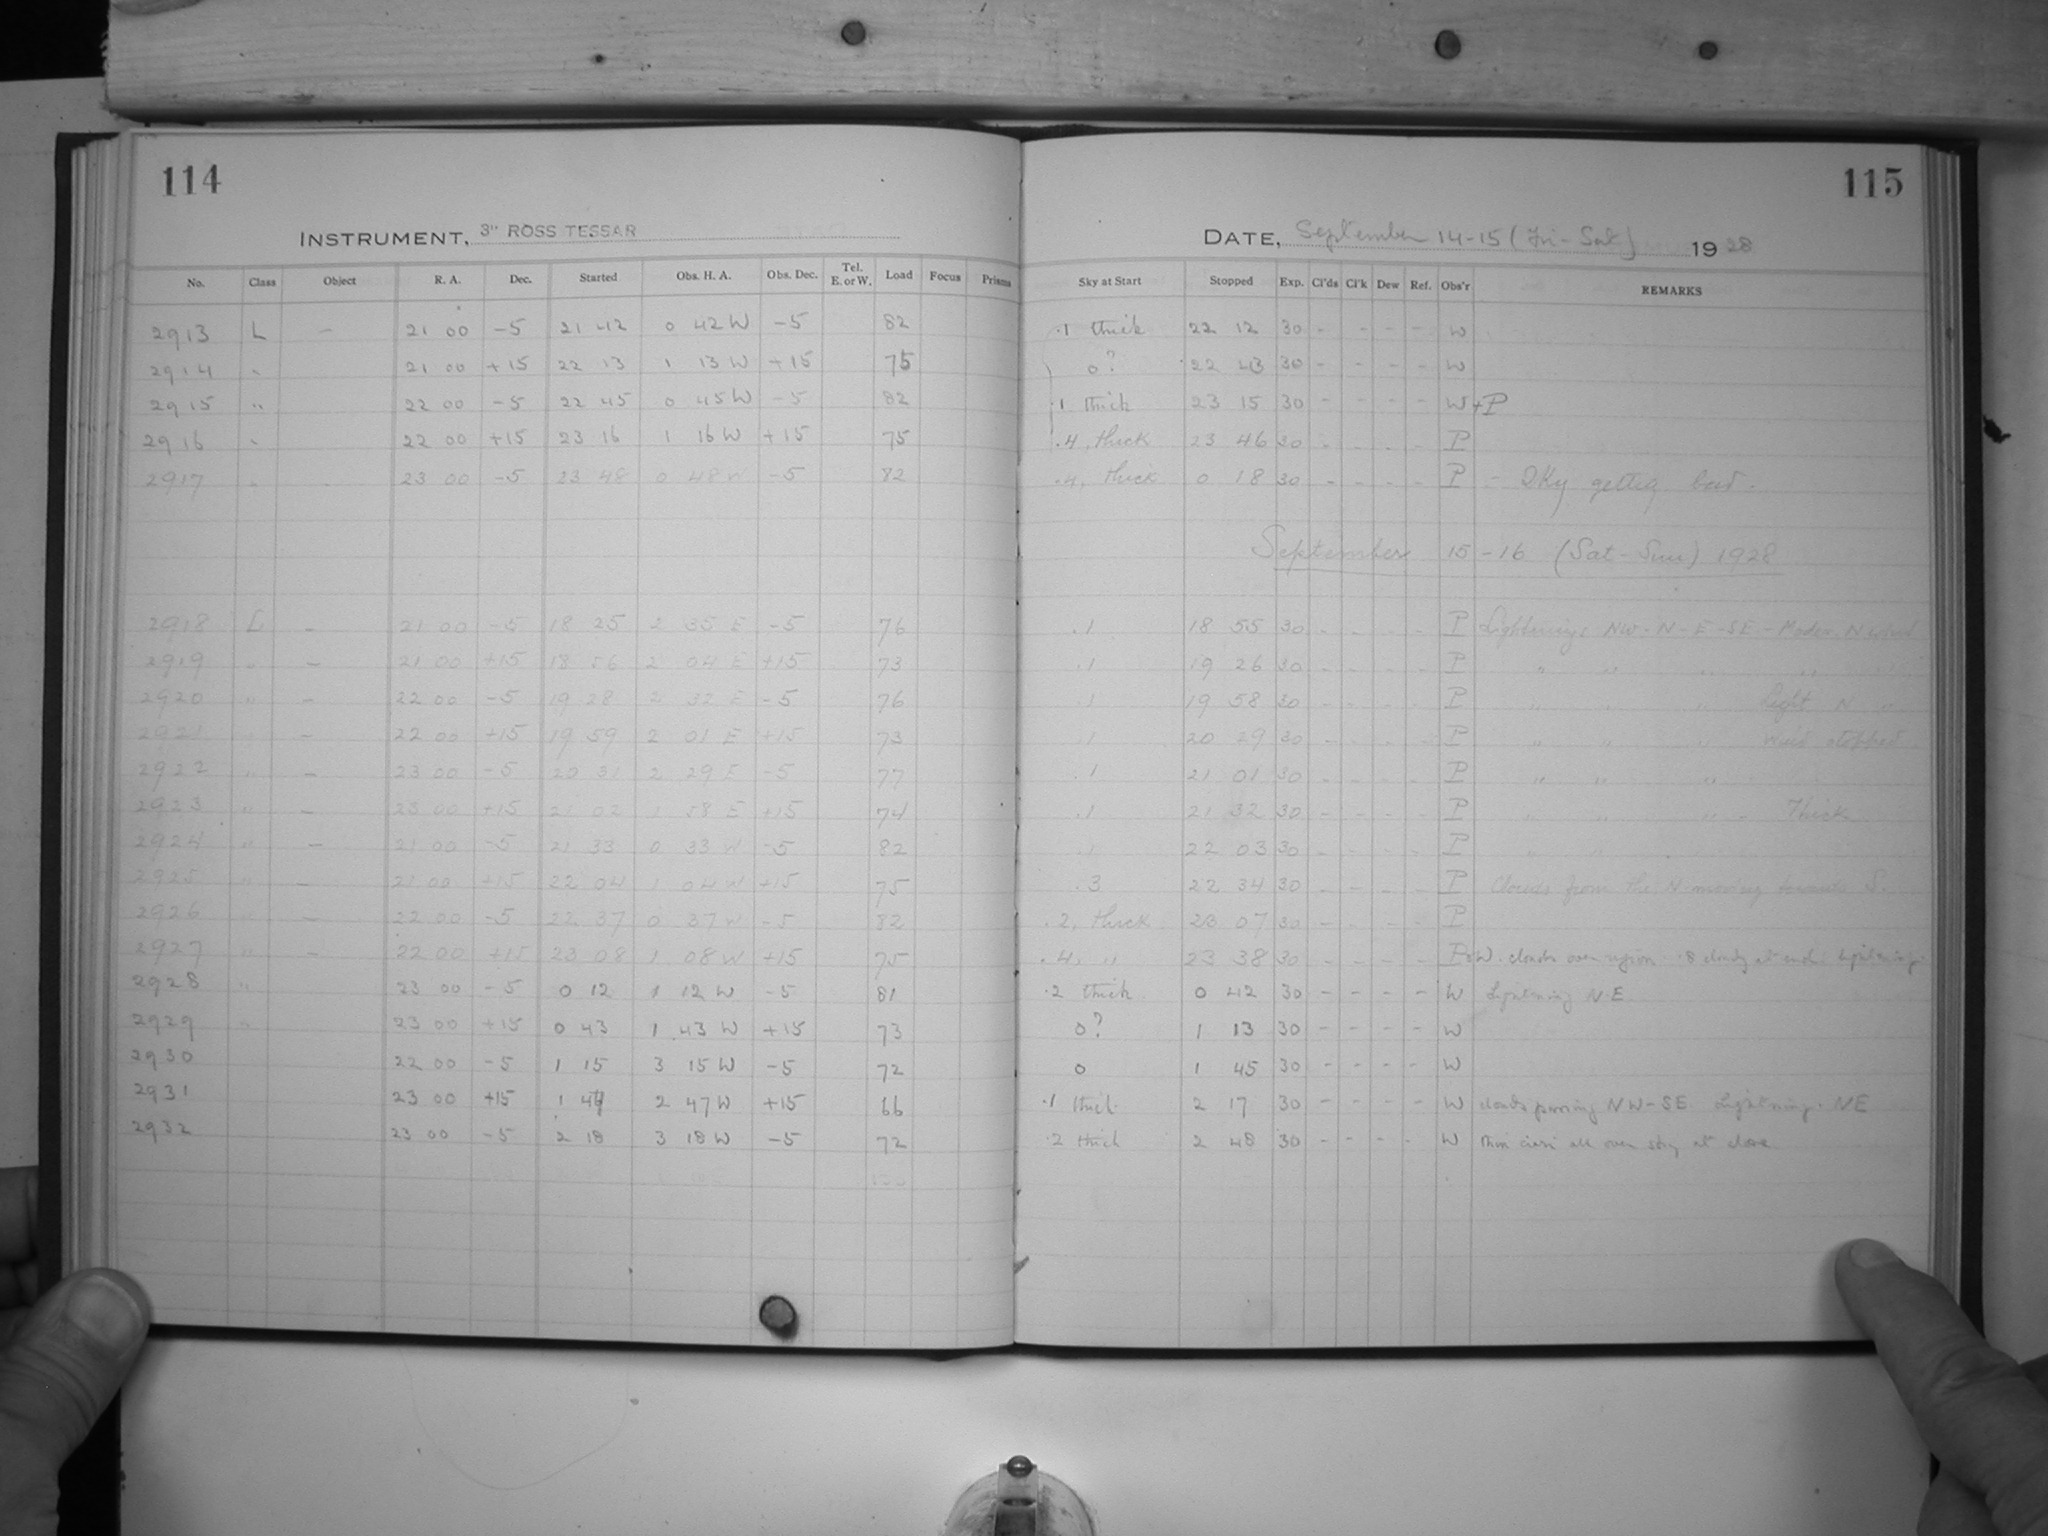 114
INSTRUMENT, 3" ROSS TESSAR
No. Class Object R. A. Dec. Started Obs. H. A. Obs. Dec. Tel. E. or W. Load Focus Prisms
2913 L - 21 00 -5 21 42 0 42 W -5 82
2914 " 21 00 +15 22 13 1 13 W +15 75
2915 " 22 00 -5 22 45 0 45 W -5 82
2916 " 22 00 +15 23 16 1 16 W +15 75
2917 " 23 00 -5 23 48 0 48 W -5 82
2918 L - 21 00 -5 18 25 2 35 E -5 76
2919 " - 21 00 +15 18 56 2 04 E +15 73
2920 " - 22 00 -5 19 28 2 32 E -5 76
2921 " - 22 00 +15 19 59 2 01 E +15 73
2922 " - 23 00 -5 20 31 2 29 E -5 77
2923 " - 23 00 +15 21 02 1 58 E +15 74
2924 " - 21 00 -5 21 33 0 33 W -5 82
2925 " - 21 00 +15 22 04 1 04 W +15 75
2926 " - 22 00 -5 22 37 0 37 W -5 82
2927 " - 22 00 +15 23 08 1 08 W +15 75
2928 " 23 00 -5 0 12 1 12 W -5 81
2929 " 23 00 +15 0 43 1 43 W +15 73
2930 22 00 -5 1 15 3 15 W -5 72
2931 23 00 +15 1 47 2 47 W +15 66
2932 23 00 -5 2 18 3 18 W -5 72
115
DATE, September 14-15 (Fri-Sat) 1928
Sky at Start Stopped Exp. Cl'ds Cl'k Dew Ref. Obs'r REMARKS
.1 thick 22 12 30 - - - - W
0? 22 43 30 - - - - W
.1 thick 23 15 30 - - - - W+P
.4, thick 23 46 30 - - - - P
.4, thick 0 18 30 - - - - P - Sky getting bad.
September 15-16 (Sat-Sun) 1928
.1 18 55 30 - - - - P Lightnings NW-N-E-SE - Moder. N wind
.1 19 26 30 - - - - P " " " "
.1 19 58 30 - - - - P " " " light N "
.1 20 29 30 - - - - P " " " wind stopped
.1 21 01 30 - - - - P " " "
.1 21 32 30 - - - - P " " " - Thick
.1 22 03 30 - - - - P " "
.3 22 34 30 - - - - P Clouds from the N moving towards S.
.2, thick 23 07 30 - - - - P
.4, " 23 38 30 - - - - P&W. clouds over region .8 cloudy at end. Lightning.
.2 thick 0 42 30 - - - - W Lightning NE
0? 1 13 30 - - - - W
0 1 45 30 - - - - W
.1 thick 2 17 30 - - - - W clouds passing NW-SE. Lightning. NE
.2 thick 2 48 30 - - - - W thin cirri all over sky at close